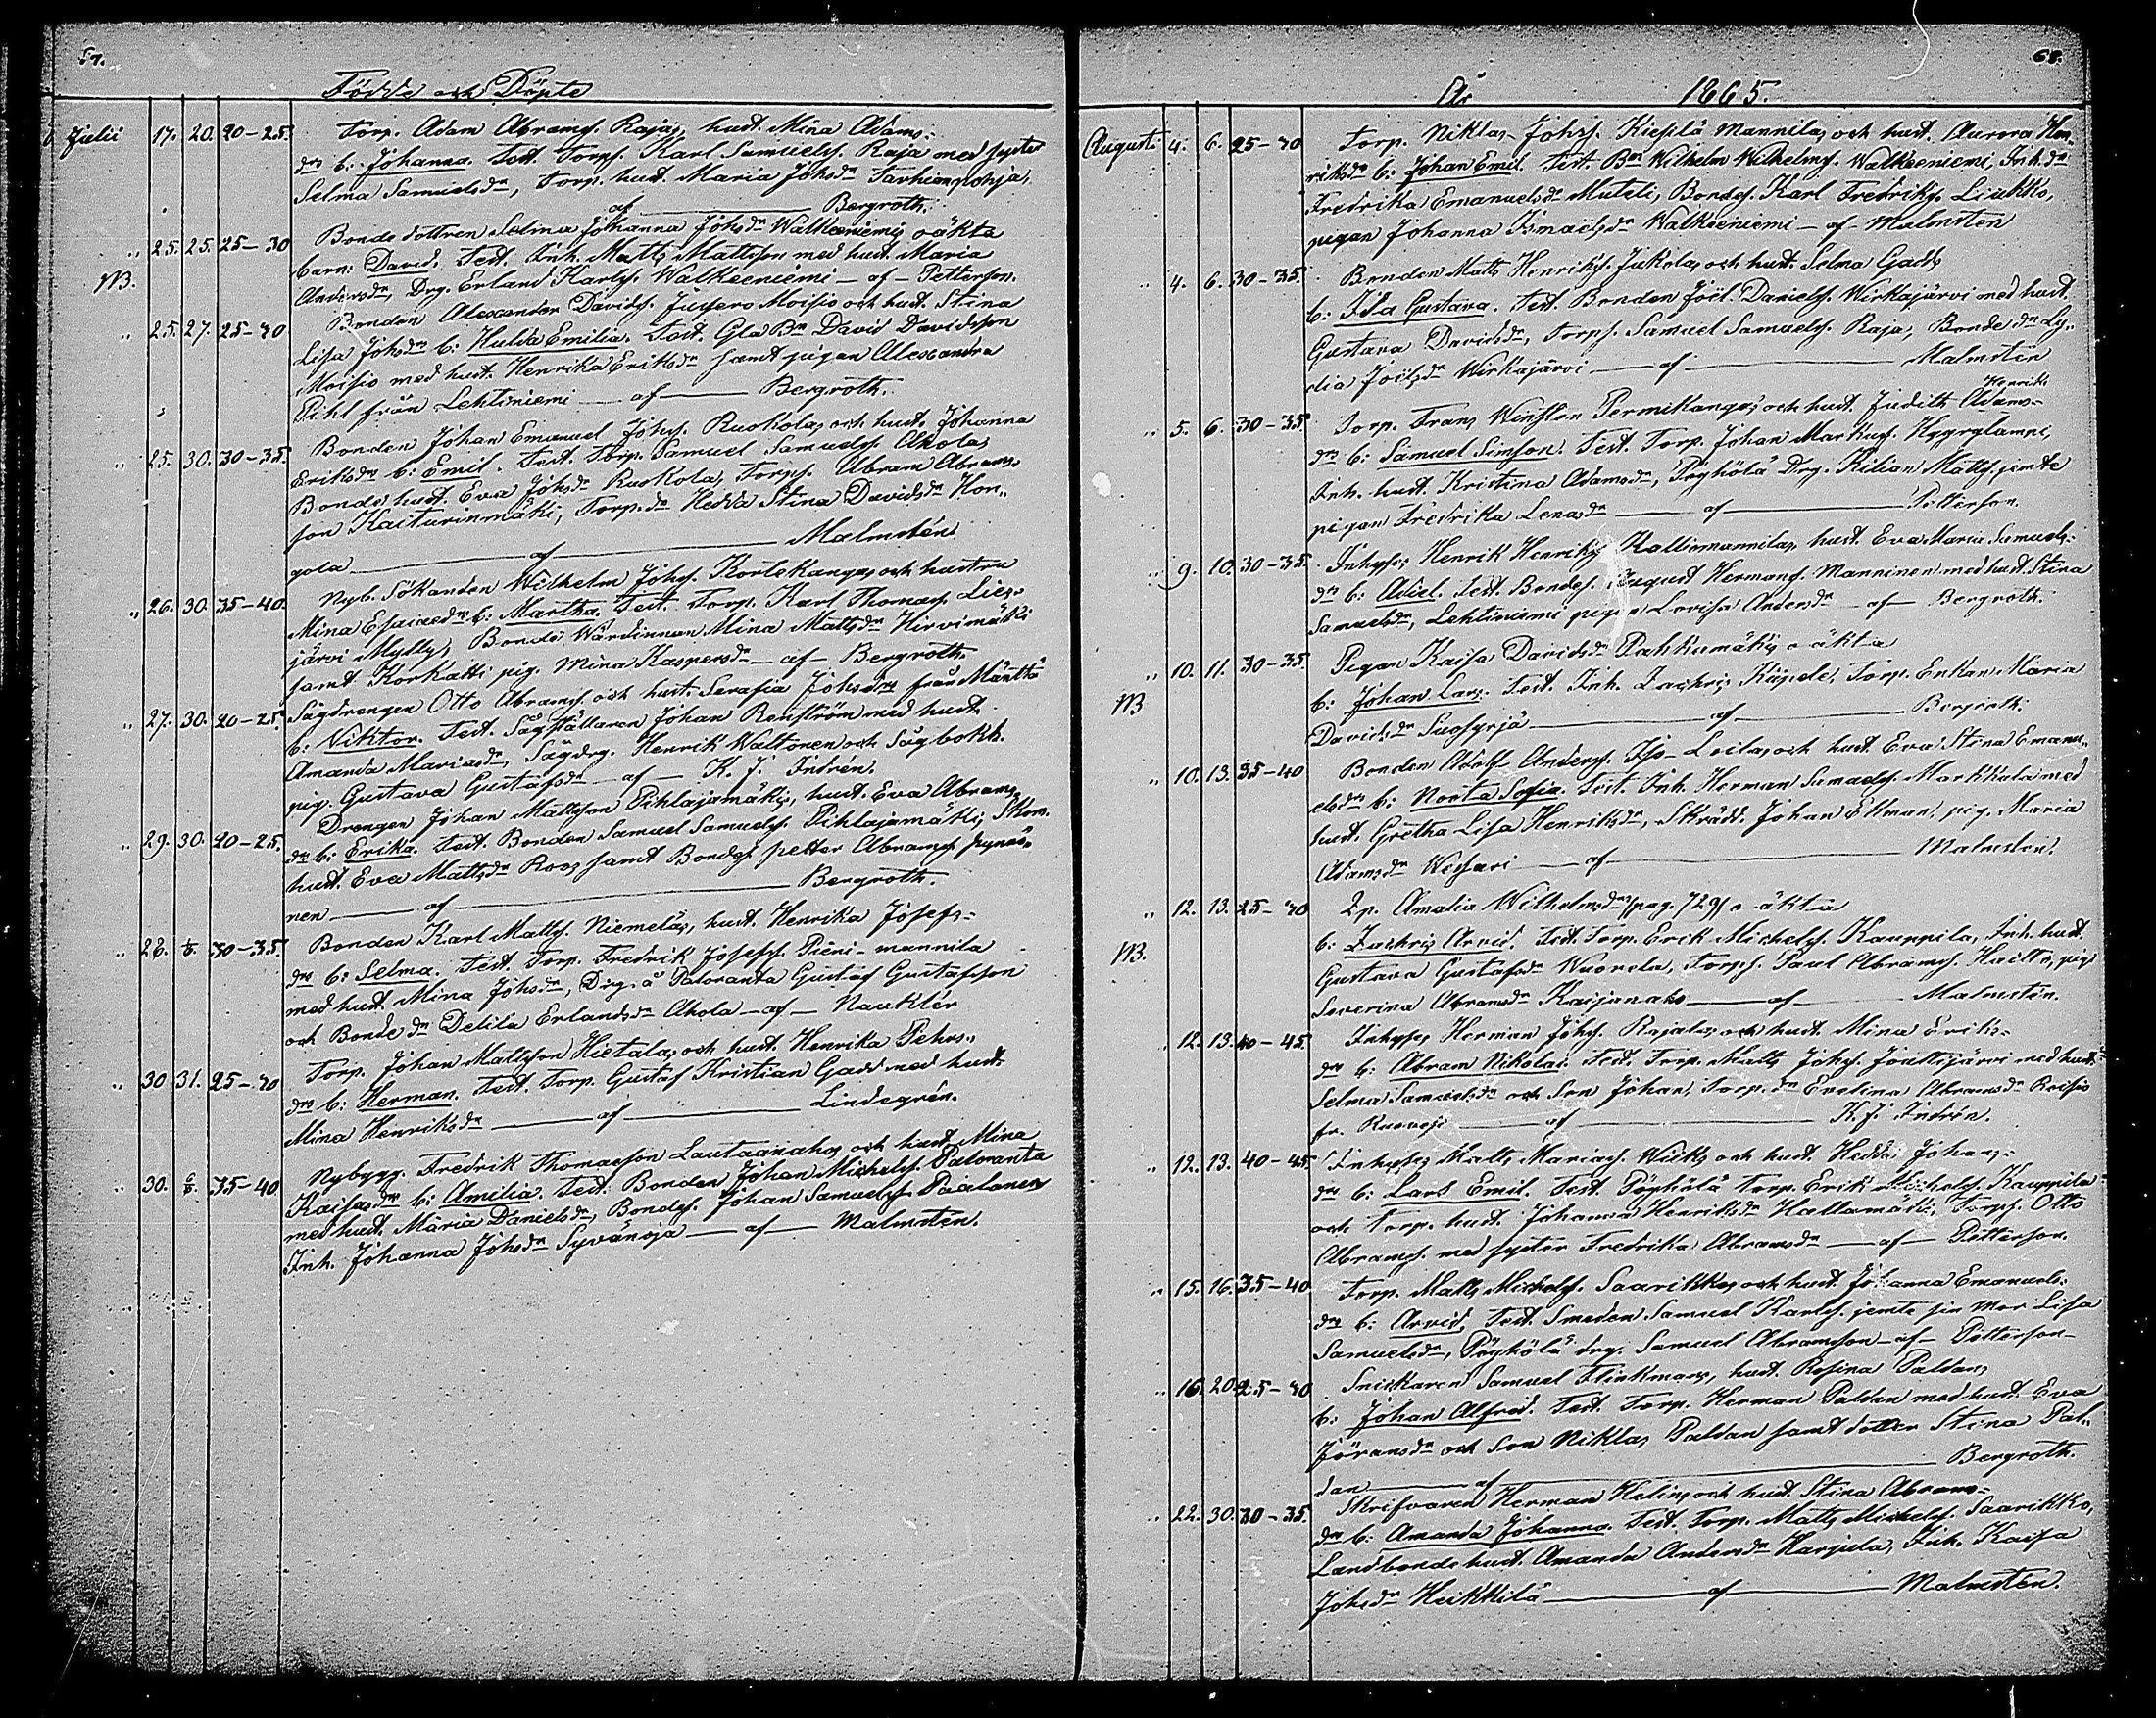 Födde och Döpte
Julii 17. 20. 20-25. Torp. Adam Abramss. Rajas, hust. Mina Adams-
drs b: Johanna. Test. Torps. Karl Samuelss. Raja med syster
Selma Samuelsdr, Torp. hust. Maria Johsdr Tarhienpohja,
af Bergroth.
" 25. 25. 25-30 Bondedottren Selma Johanna Johsdr Walkeeniemis oäkta
M. barn: David. Test. Inh. Matts Mattsson med hust. Maria
Andersdr, Drg. Erland Karlss. Walkeeniemi - af - Petterson.
" 25. 27. 25-30 Bonden Alexander Davidss. Moisio och hust. Stina
Lisa Johsdrs b: Hulda Emilia. Test. Gla Bn David Davidsson
Moisio med hust. Henrika Eriksdr samt pigan Alexandra
Pihl från Lehtiniemi af Bergroth.
" 25. 30. 30-35. Bonden Johan Emanuel Johss. Ruokolas och hust. Johanna
Eriksdrs b: Emil. Test. Torp. Samuel Samuelss. Aholas
Bonde hust. Eva Johsdr Ruokola, Torps. Abram Abrams-
son Kaiturinmäki, Torp.dr Hedda Stina Davidsdr Hon-
gola af Malmstén
" 26. 30. 35-40. Nyb. Sökanden Wilhelm Johss. Kortekangas och hustru
Mina Esaiaedrs b: Martha. Test. Torp. Karl Thomass. Lies-
järvi Mylly, Bonde Wärdinnan Mina Mattsdr Hirvimäki
samt Korkatti pig. Mina Kaspersdr - af - Bergroth.
" 27. 30. 20-25. Sågdrengen Otto Abramss. och hust. Serafia Johsdrs från Mänttä
b: Viktor. Test. Sågställaren Johan Renström med hust.
Amanda Mariasdr, Sågdrg. Henrik Waltonen och Sågbokh.
pig. Gustava Gustafsdr - af - K. J. Indrén.
" 29. 30. 20-25. Drengen Johan Mattsson Pihlajamäkis, hust. Eva Abrams-
drs b: Erika. Test. Bonden Samuel Samuelss. Pihlajamäki, Skom.
hust. Eva Mattsdr Roos samt Bondes. Petter Abramss. Rynnä-
nen af Bergroth.
" 28. 30-35. Bonden Karl Mattss. Niemeläs, hust. Henrika Josefs-
drs b: Selma. Test. Torp. Fredrik Josefss. Pieni-mannila
med hust. Mina Johsdr, Drg. å Paloranta Gustaf Gustafsson
och Bonde dr Delila Erlandsdr Ahola - af - Nauklér
" 30 31. 25-30 Torp. Johan Mattsson Hietalas och hust. Henrika Pehrs-
drs b: Herman. Test. Torp. Gustaf Kristian Gadd med hust.
Mina Henriksdr af Lindegrén.
" 30. 6/8. 35-40. Nybygg. Fredrik Thomasson Lautaanahos och hust. Mina
Kaisasdrs b: Amilia. Test. Bonden Johan Michelss. Paloranta
med hust. Maria Danielsdr, Bondes. Johan Samuelss. Paalanen
Inh. Johanna Johsdr Syvänoja af Malmstén.
68.
År 1865.
Augusti 4. 6. 25-30 Torp. Niklas Johss. Kiesilä Mannilas och hust. Aurora Hen-
riksdrs b: Johan Emil. Test. Bn Wilhelm Wilhelmss. Walkeeniemi, Inh.dr
Fredrika Emanuelsdr Muteli, Bondes. Karl Fredrikss. Liukko,
pigan Johanna Ismaelsdr Walkeeniemi - af - Malmstén
" 4. 6. 30-35. Bonden Matts Henrikss. Jukolas och hust. Selma Gadds
b: Ida Gustava. Test. Bonden Joel Danielss. Wirkajärvi med hust.
Gustava Davidsdr, Torps. Samuel Samuelss. Raja, Bonde dr Ly-
dia Joelsdr Wirkajärvi af Malmstén
" 5. 6. 30-35 Torp. Frans Winstén Permikangas och hust. Judith Henriks Adams-
drs b: Samuel Simson. Test. Torp. Johan Markuss. Hyyrylampi,
Inh. hust. Kristina Adamsdr, Pöyhölä Drg. Kilian Mattss. jemte
pigan Fredrika Lenasdr af Petterson.
" 9. 10. 30-35. Inhyses Henrik Henrikss. Kalliomannilas, hust. Eva Maria Samuels-
drs b: Adiel. Test. Bondes. August Hermanss. Manninen med hust. Stina
Samuelsdr, Lehtiniemi pigan Lovisa Andersdr - af - Bergroth.
" 10. 11. 30-35. Pigan Kaisa Davidsdr Pahkamäkis o-äkta
M b: Johan Lars. Test. Inh. Zachris Torp. Enkan Maria
Davidsdr Suosyrjä af Bergroth.
" 10. 13. 35-40 Bonden Adolf Anderss. Iso-Leilas, och hust. Eva Stina Emanu-
elsdrs b: Norta Sofia. Test. Inh. Herman Samuelss. Markkula med
hust. Gretha Lisa Henriksdr, Skrädd. Johan Ekman, pig. Maria
Adamsdr Wessari af Malmstén.
" 12. 13. 25-30 Qp. Amalia Wilhelmsdrs (pag. 729) o-äkta
M. b: Zachris Arvid. Test. Torp. Erik Michelss. Kauppila, Inh. hust.
Gustava Gustafsdr Wuorela, Torps. Paul Abramss. Haitto, pig.
Severina Abramsdr Kaijanaho af Malmstén.
" 12. 13. 40-45. Inhyses Herman Johss. Rajalas och hust. Mina Eriks-
drs b: Abram Nikolai. Test. Torp. Matts Johss. Joutsijärvi med hust.
Selma Samuelsdr och Son Johan, Torp.dr Evelina Abramsdr Roisio
fr. Ruovesi af K. J. Indrén.
" 12. 13. 40-45. Inhyses Matts Mariass. Wiiks och hust. Hedda Johans-
drs b: Lars Emil. Test. Pöyhölä Torp. Erik Michelss. Kauppila
och Torp. hust. Johanna Henriksdr Hallamäki, Torps. Otto
Abramss. med syster Fredrika Abramsdr af Petterson.
" 15. 16. 35-40 Torp. Matts Michelss. Saarikkos och hust. Johanna Emanuels-
drs b: Arvid. Test. Smeden Samuel Karlss. jemte sin Mor Lisa
Samuelsdr, Pöyhölä drg. Samuel Abramsson - af - Petterson -
" 16. 20. 25-30 Snickaren Samuel Flinkmans, hust. Rosina Paldans
b: Johan Alfred. Test. Torp. Herman Paldan med hust. Eva
Göransdr och Son Niklas Paldan samt dotter Stina Pal-
dan af Bergroth.
" 22. 30. 30-35. Skrifvaren Herman Helins och hust. Stina Abrams-
drs b: Amanda Johanna. Test. Torp. Matts Michelss. Saarikko,
Landbonde hust. Amanda Andersdr Harjula, Inh. Kaisa
Johsdr Heikkilä af Malmstén.